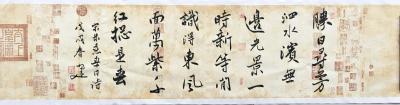 勝日尋芳
泗水濱無
邊光景一
時新等閒
識得東風
面萬紫千
紅總是春
宋朱熹春日詩
戊戌春